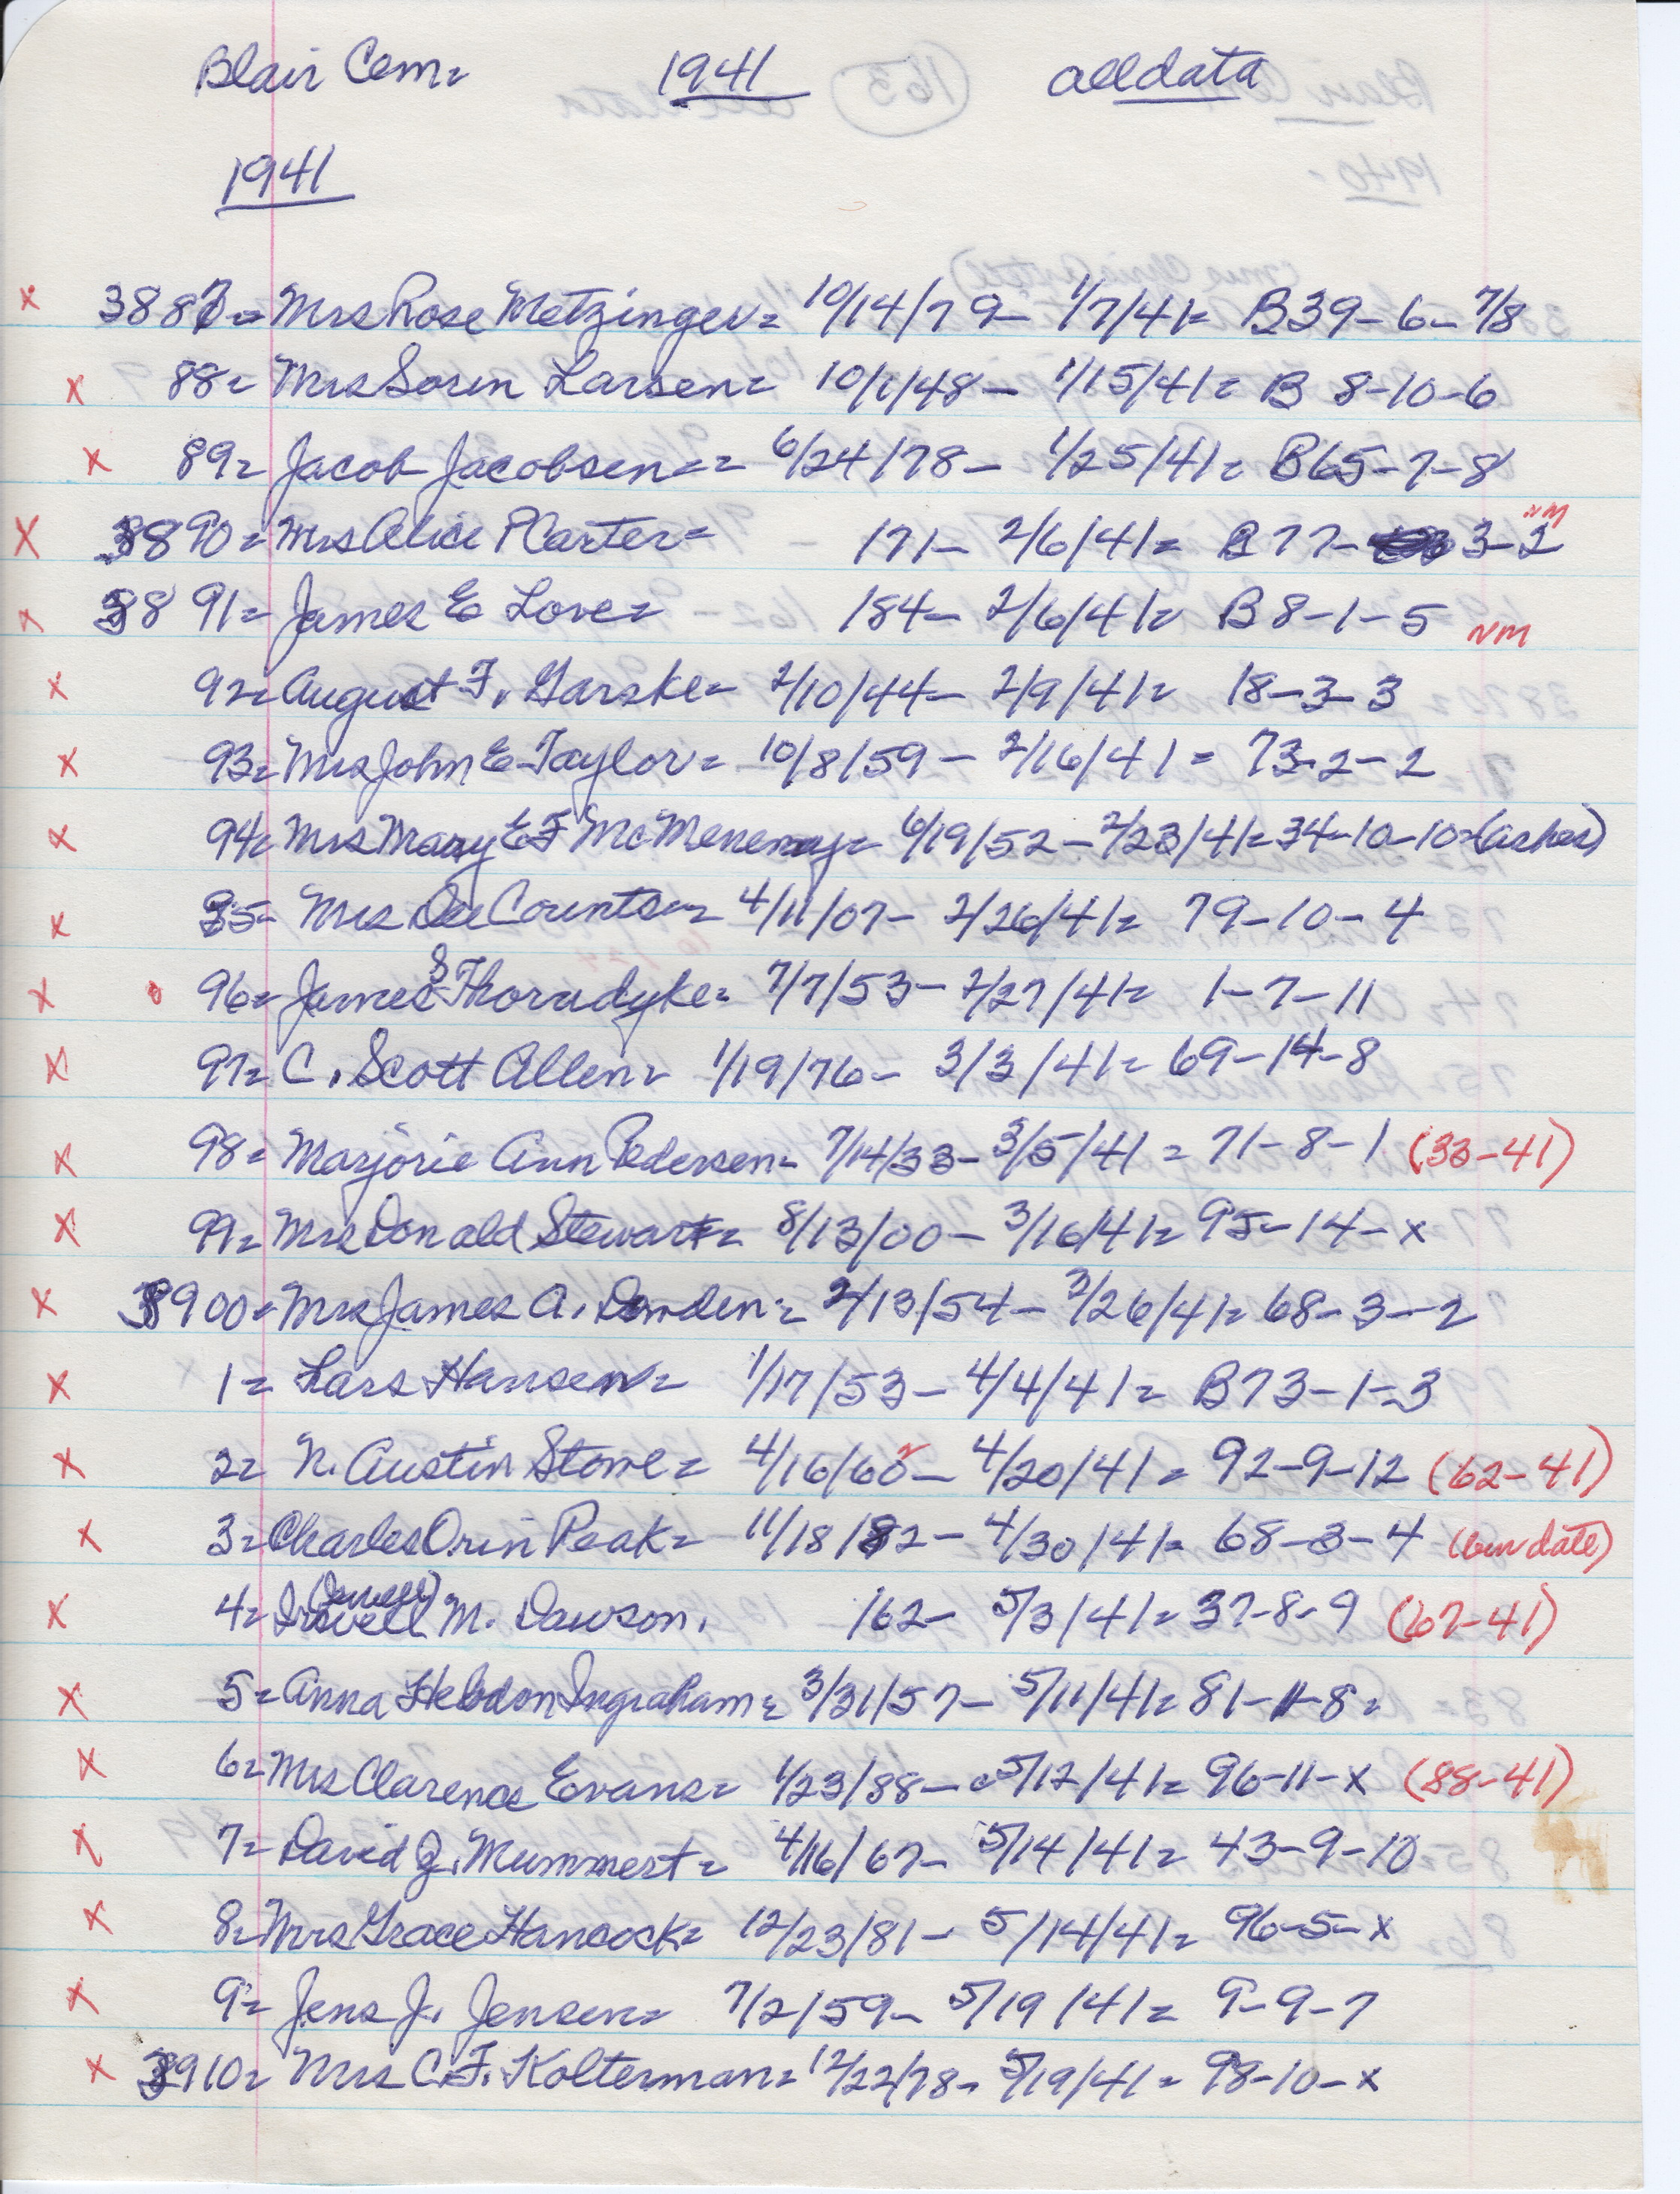 Blair Cem= 1941 alldata
1941
x 3887= Mrs Rose Metzinger= 10/14/79- 1/7/41= B39-6-7/8
x 88= Mrs Soren Larsen= 10/1/48- 1/15/41= B 8-10-6
x 89= Jacob Jacobsen== 6/24/78- 1/25/41= B65-7-8
x 3890= Mrs Alice P Carter= 171- 2/6/41= B77- 3-2 NM
x 3891= James E Love= 184- 2/6/41= B8-1-5 NM
x 92= August F. Garske= 2/10/44- 2/9/41= 18-3-3
x 93= Mrs John E Taylor= 10/8/59- 2/16/41= 73-2-2
x 94= Mrs Mary E F McMenemy= 6/19/52-2/23/41=34-10-10=(ashes)
x 95= Mrs Counts= 4/11/07- 2/26/41= 79-10-4
x 96= James S Thorndyke= 7/7/53- 2/27/41= 1-7-11
x 97= C. Scott Allen= 1/19/76- 3/3/41= 69-14-8
x 98= Marjorie Ann Pedersen= 7/14/33-3/5/41=71-8-1 (33-41)
x 99= Mrs Donald Stewart= 8/13/00- 3/16/41= 95-14-x
x 3900= Mrs James A. Dowden= 2/13/54- 3/26/41= 68-3-2
x 1= Lars Hansen= 1/17/53- 4/4/41= B73-1-3
x 2= N. Austin Stowe= 4/16/60 2- 4/20/41= 92-9-12 (62-41)
x 3= Charles Orin Peak= 11/18/82- 4/30/41= 68-3-4 (bur date)
x 4= M. Dawson. 162- 5/3/41= 37-8-9 (67-41)
x 5= Anna Hebdon Ingraham= 3/31/57- 5/11/41= 81-11-8=
x 6= Mrs Clarence Evans= 1/23/88- 5/12/41= 96-11-x (88-41)
x 7= David J. Mummert= 4/16/67- 5/14/41= 43-9-10
x 8= Mrs Grace Hancock= 12/23/81- 5/14/41= 96-5-x
x 9= Jens J. Jensen= 7/2/59- 5/19/41= 9-9-7
x 3910= Mrs C.F. Kolterman= 12/22/78- 5/19/41= 98-10-x